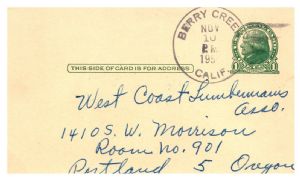 BERRY CREEK
NOV
10
P.M.
195
CALIF.
THIS SIDE OF CARD IS FOR ADDRESS
West Coast Lumbermans
Asso.
1410 S. W. Morrison
Room No. 901
Portland 5 Oregon